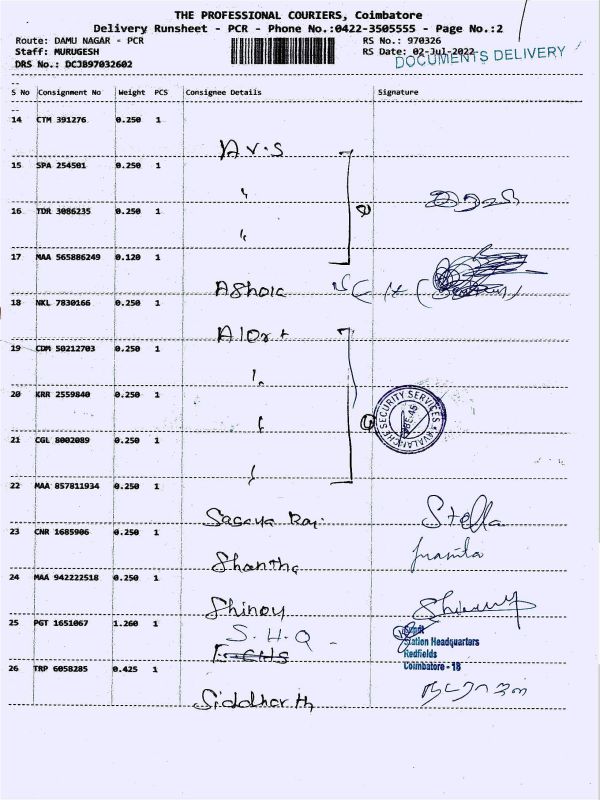 THE PROFESSIONAL COURIERS, Coimbatore
Delivery Runsheet - PCR - Phone No.:0422-3505555 - Page No.:2
Route: DAMU NAGAR - PCR RS No.: 970326
Staff: MURUGESH RS Date: 02-Jul-2022
DOCUMENTS DELIVERY
DRS No.: DCJB97032602
S No Consignment No Weight PCS Consignee Details Signature
14 CTM 391276 0.250 1
AV.S
15 SPA 254501 0.250 1
"
16 TDR 3086235 0.250 1
"
17 MAA 565886249 0.120 1
Ashok
18 NKL 7830166 0.250 1
Alort
19 CDM 50212703 0.250 1
20 KRR 2559840 0.250 1
SECURITY SERVICES
21 CGL 8002089 0.250 1
22 MAA 857811934 0.250 1
Sagaya Raj. Stella
23 CNR 1685906 0.250 1
Shantha
24 MAA 942222518 0.250 1
Shinoy
25 PGT 1651067 1.260 1
S.H.Q
Station Headquarters
Redfields
Coimbatore - 18
26 TRP 6058285 0.425 1
Siddharth